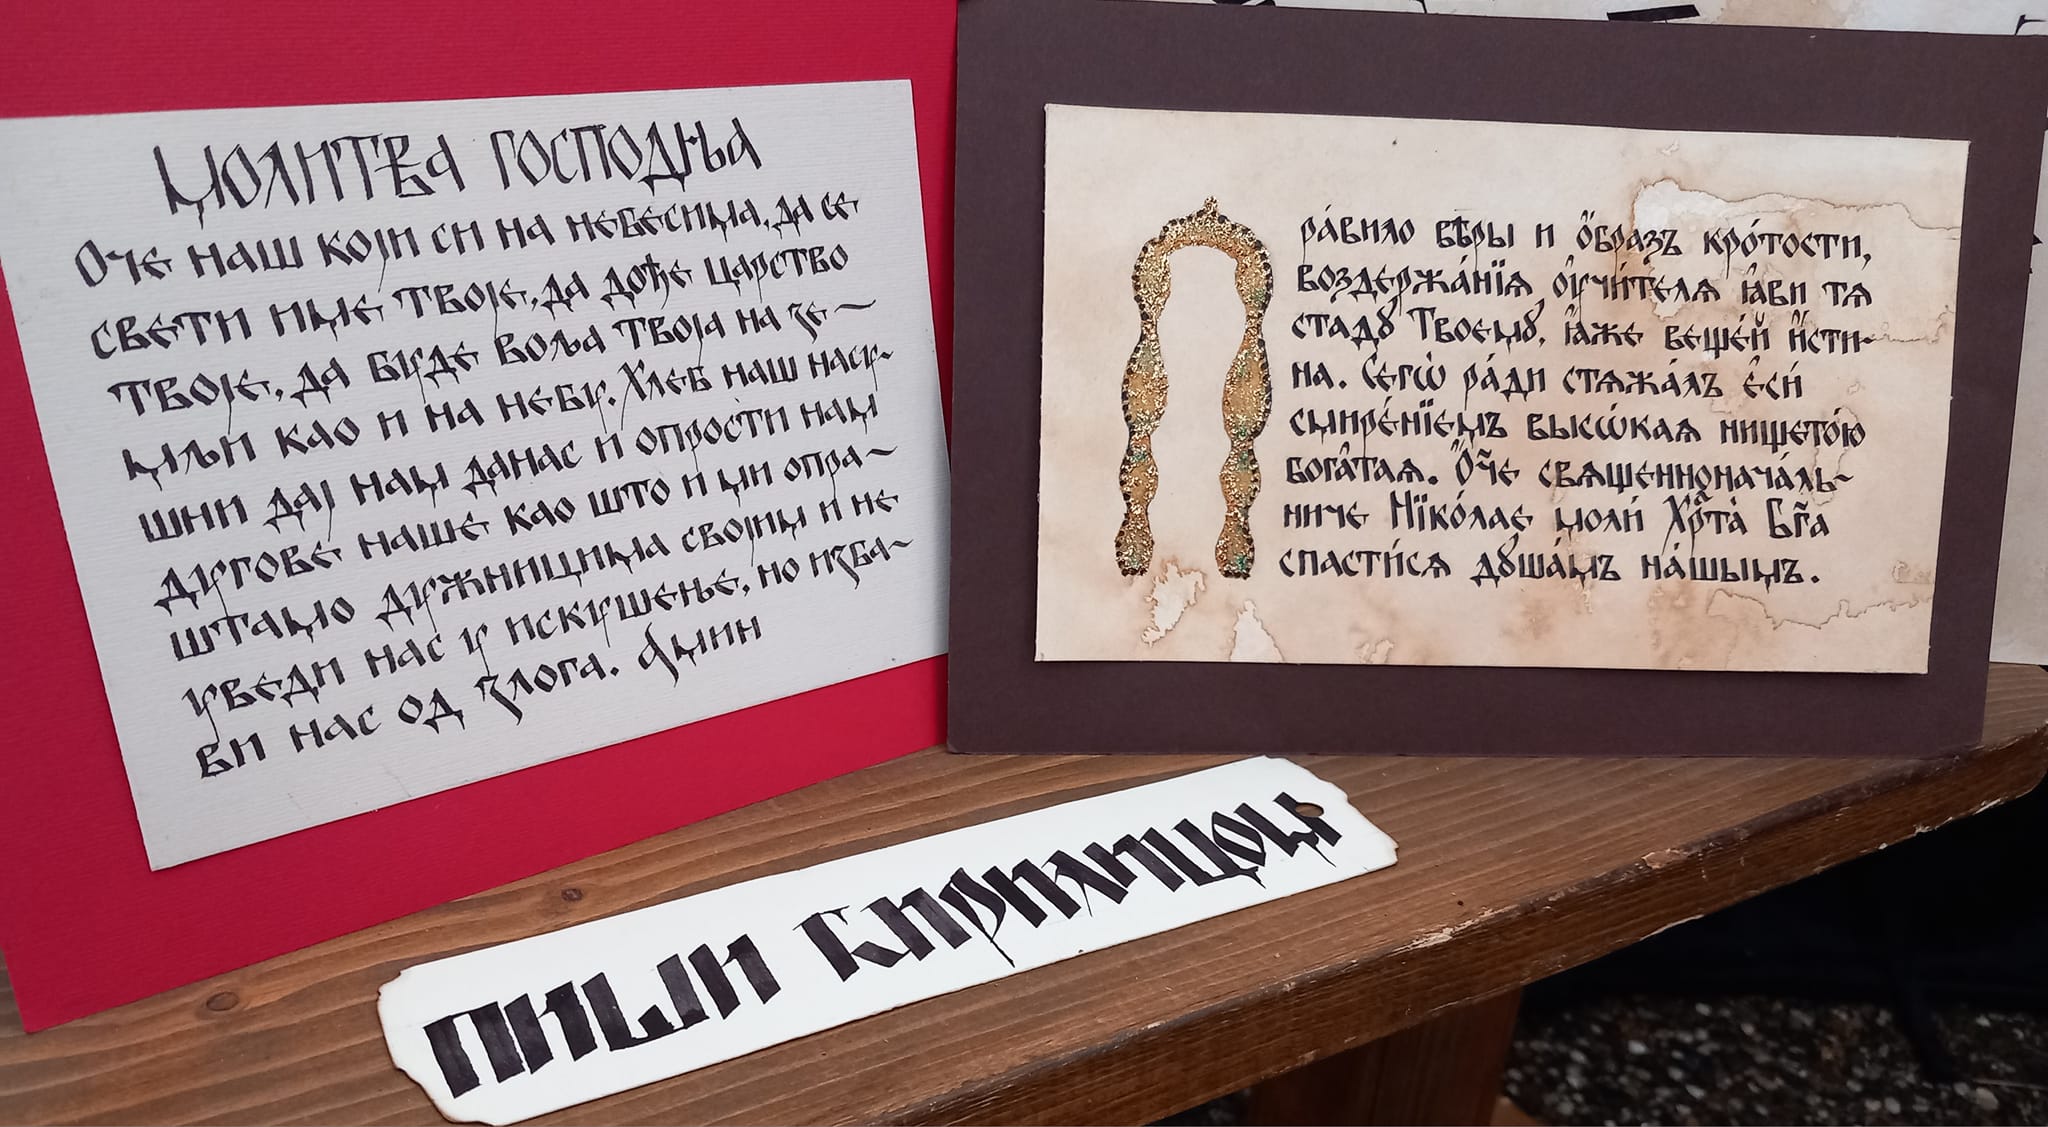 Молитва Господња
Оче наш који си на небесима, да се
свети име твоје, да дође царство
твоје, да буде воља твоја на зе~
мљи као и на небу. Хлеб наш насу~
шни дај нам данас и опрости нам
дугове наше као што и ми опра~
штамо дужницима својим и не
уведи нас у искушење, но изба~
ви нас од злога. Амин
П
ра́вило вѣ́ры и ѻ҆́бразъ кро́тости,
воздержа́нїѧ ᲂу҆чи́телѧ ꙗ҆ви тѧ
стадꙋ̀ Твоемꙋ̀, ꙗ҆́же веще́й и҆́сти~
на. Сегѡ̀ ра́ди стѧжа́лъ є҆сѝ
смире́нїемъ высѡ́каѧ нището́ю
бога́таѧ. Ѻ҆́ч҃е свѧщеннонача́ль~
ниче Нїко́лае моли́ Хрⷭ҇та̀ Бг҃а
спасти́сѧ дꙋша́мъ на́шымъ.
ПИШИ ЋИРИЛИЦОМ